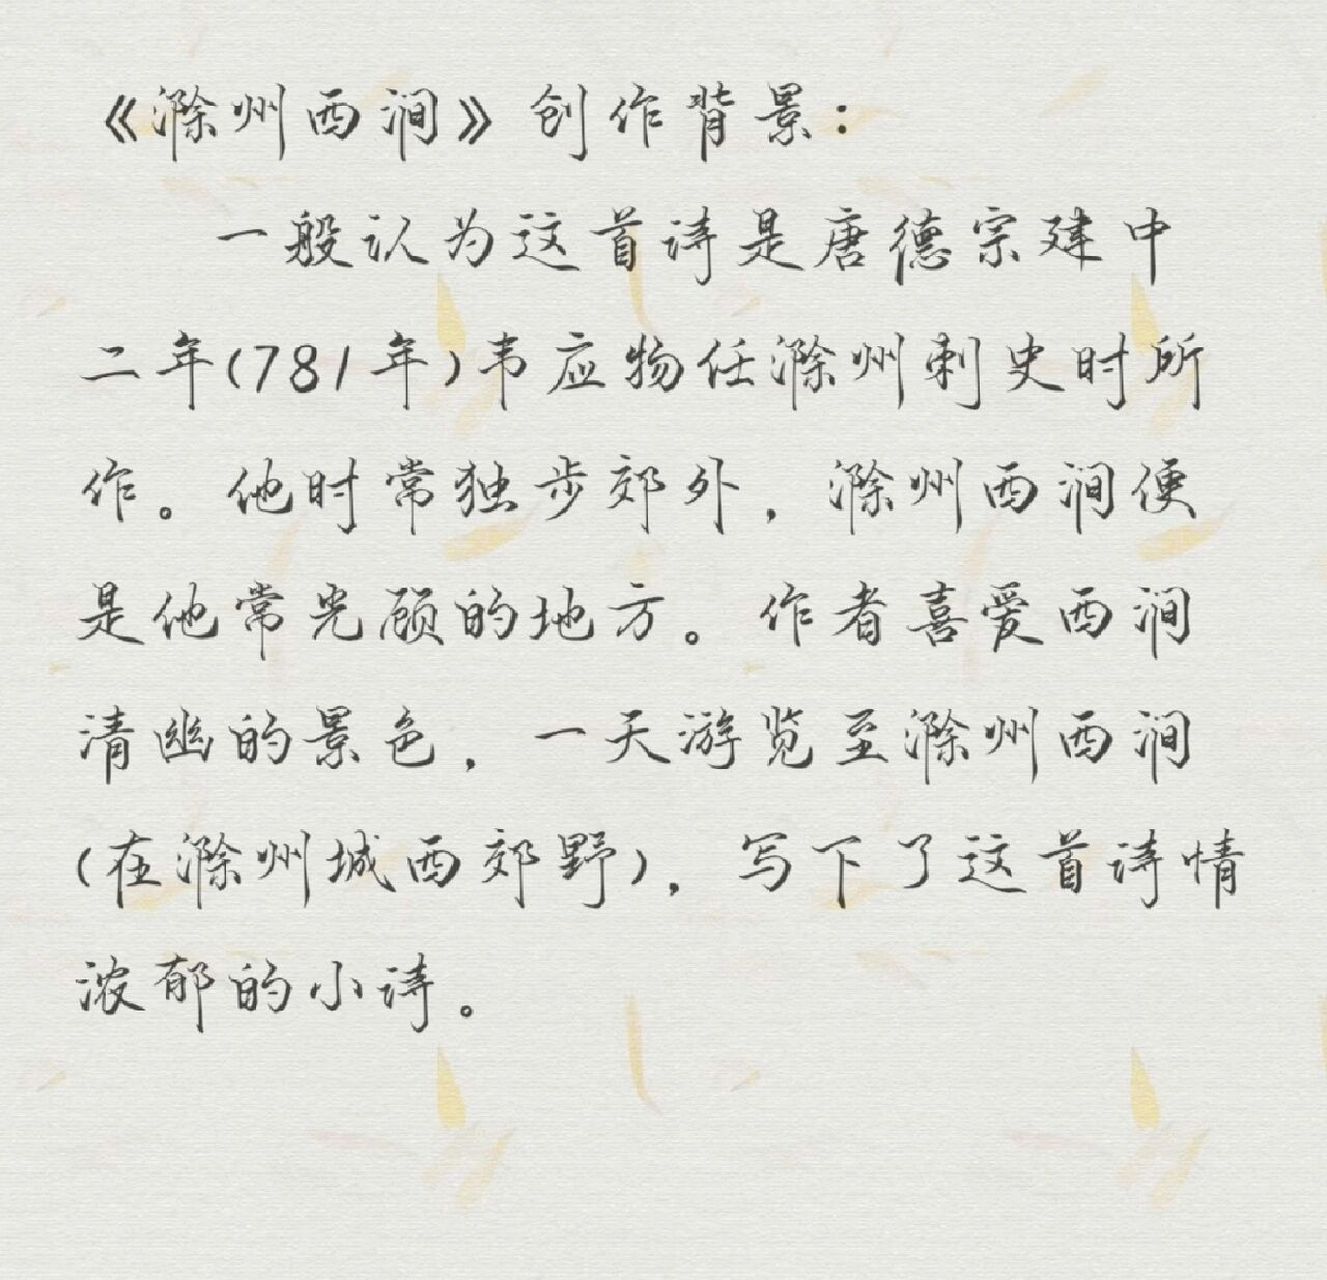 《滁州西涧》创作背景：
一般认为这首诗是唐德宗建中
二年(781年)韦应物任滁州刺史时所
作。他时常独步郊外，滁州西涧便
是他常光顾的地方。作者喜爱西涧
清幽的景色，一天游览至滁州西涧
(在滁州城西郊野)，写下了这首诗情
浓郁的小诗。